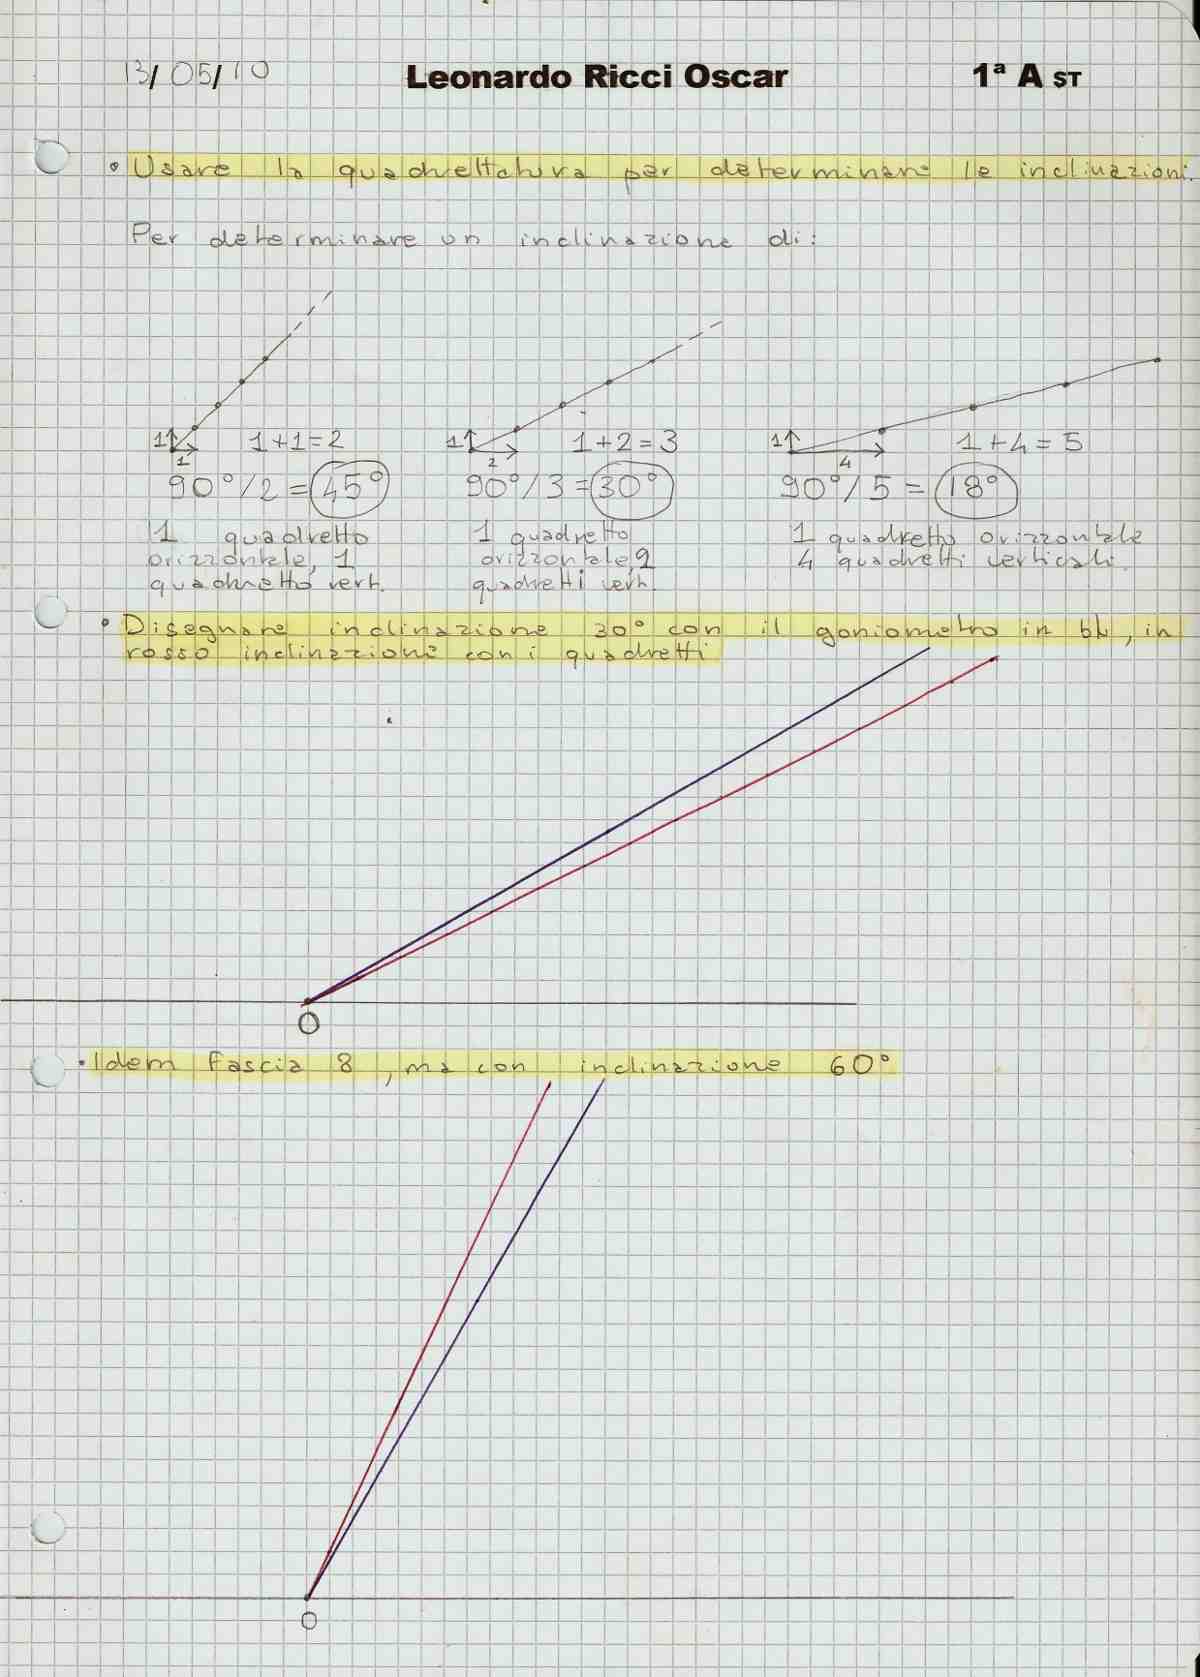 13/05/10 Leonardo Ricci Oscar 1ª A ST
• Usare la quadrettatura per determinare le inclinazioni.
Per determinare un inclinazione di:
1 1 1+1=2
1 2 1+2=3
1 4 1+4=5
90°/2 = 45° 90°/3 = 30° 90°/5 = 18°
1 quadretto
orizzontale, 1
quadretto vert.
1 quadretto
orizzontale, 2
quadretti vert.
1 quadretto orizzontale
4 quadretti verticali.
• Disegnare inclinazione 30° con il goniometro in bl, in
rosso inclinazione con i quadretti
O
• Idem fascia 8, ma con inclinazione 60°
O